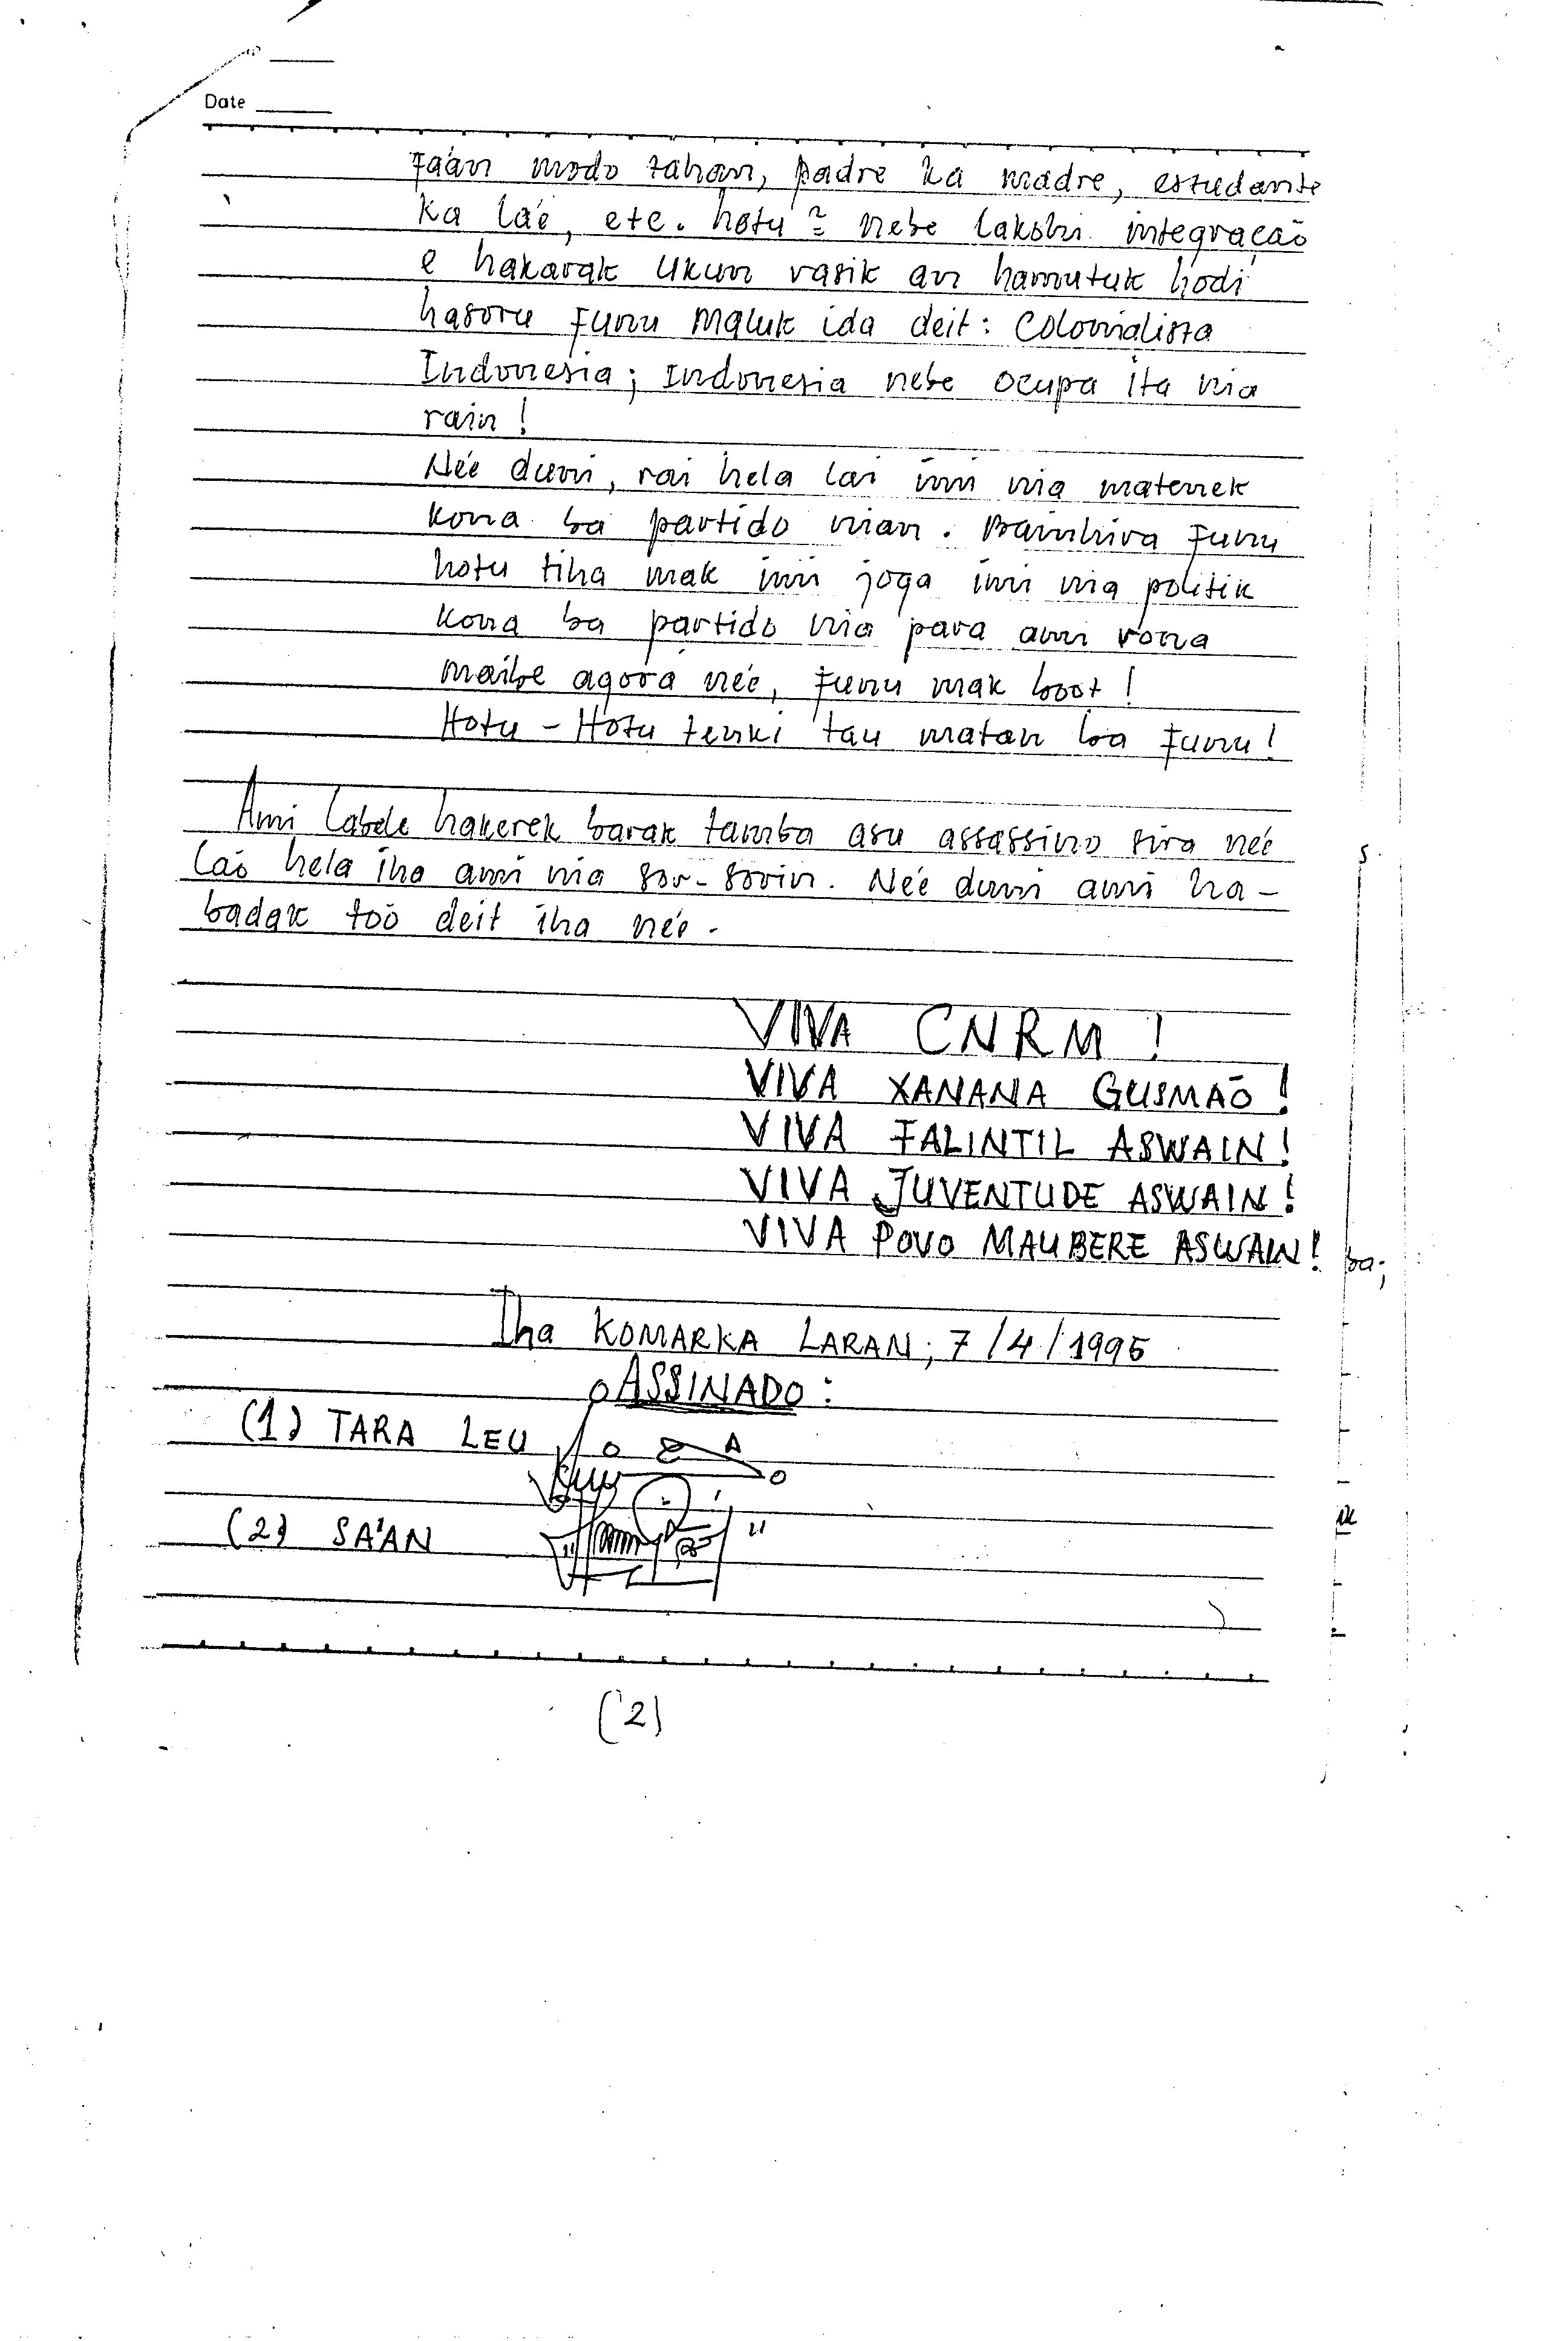 Date
Faán modo tahan, padre ka madre, estudante
ka láe, etc. hotu² = nebe lakohi integração
e hakarak ukun rasik an hamutuk hodi
hasoru funu maluk ida deit: colonialista
Indonesia; Indonesia nebe ocupa ita nia
rain!
Née duni, rai hela lai imi nia matenek
kona ba partido nian. Bainhira funu
hotu tiha mak imi joga imi nia politik
kona ba partido nia para ami rona
maibe agora née, funu mak boot!
Hotu-Hotu tenki tau matan ba funu!
Ami labele hakerek barak tamba asu assassino sira née
láo hela iha ami nia sor-sorin. Née duni ami ha-
badak tóo deit iha née.
VIVA CNRM!
VIVA XANANA GUSMÃO!
VIVA FALINTIL ASWAIN!
VIVA JUVENTUDE ASWAIN!
VIVA POVO MAUBERE ASWAIN!
ba;
Iha KOMARKA LARAN; 7/4/1995
ASSINADO:
(1) TARA LEU
(2) SA'AN
(2)